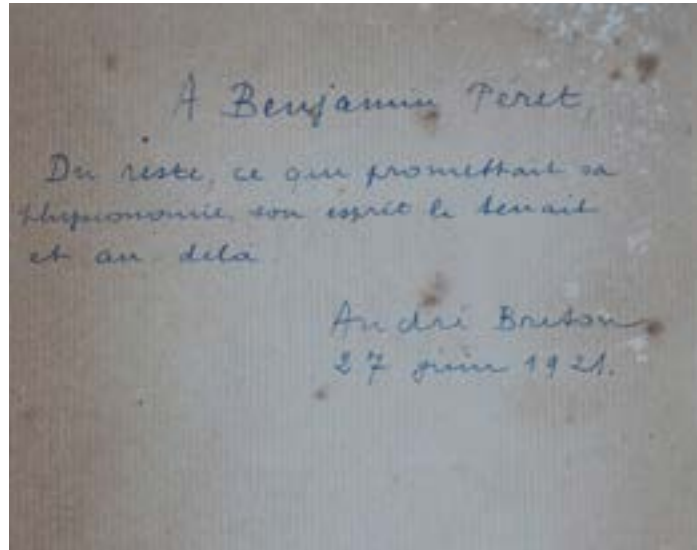 A Benjamin Péret,
Du reste, ce que promettait sa
physionomie, son esprit le tenait
et au delà
André Breton
27 juin 1921.